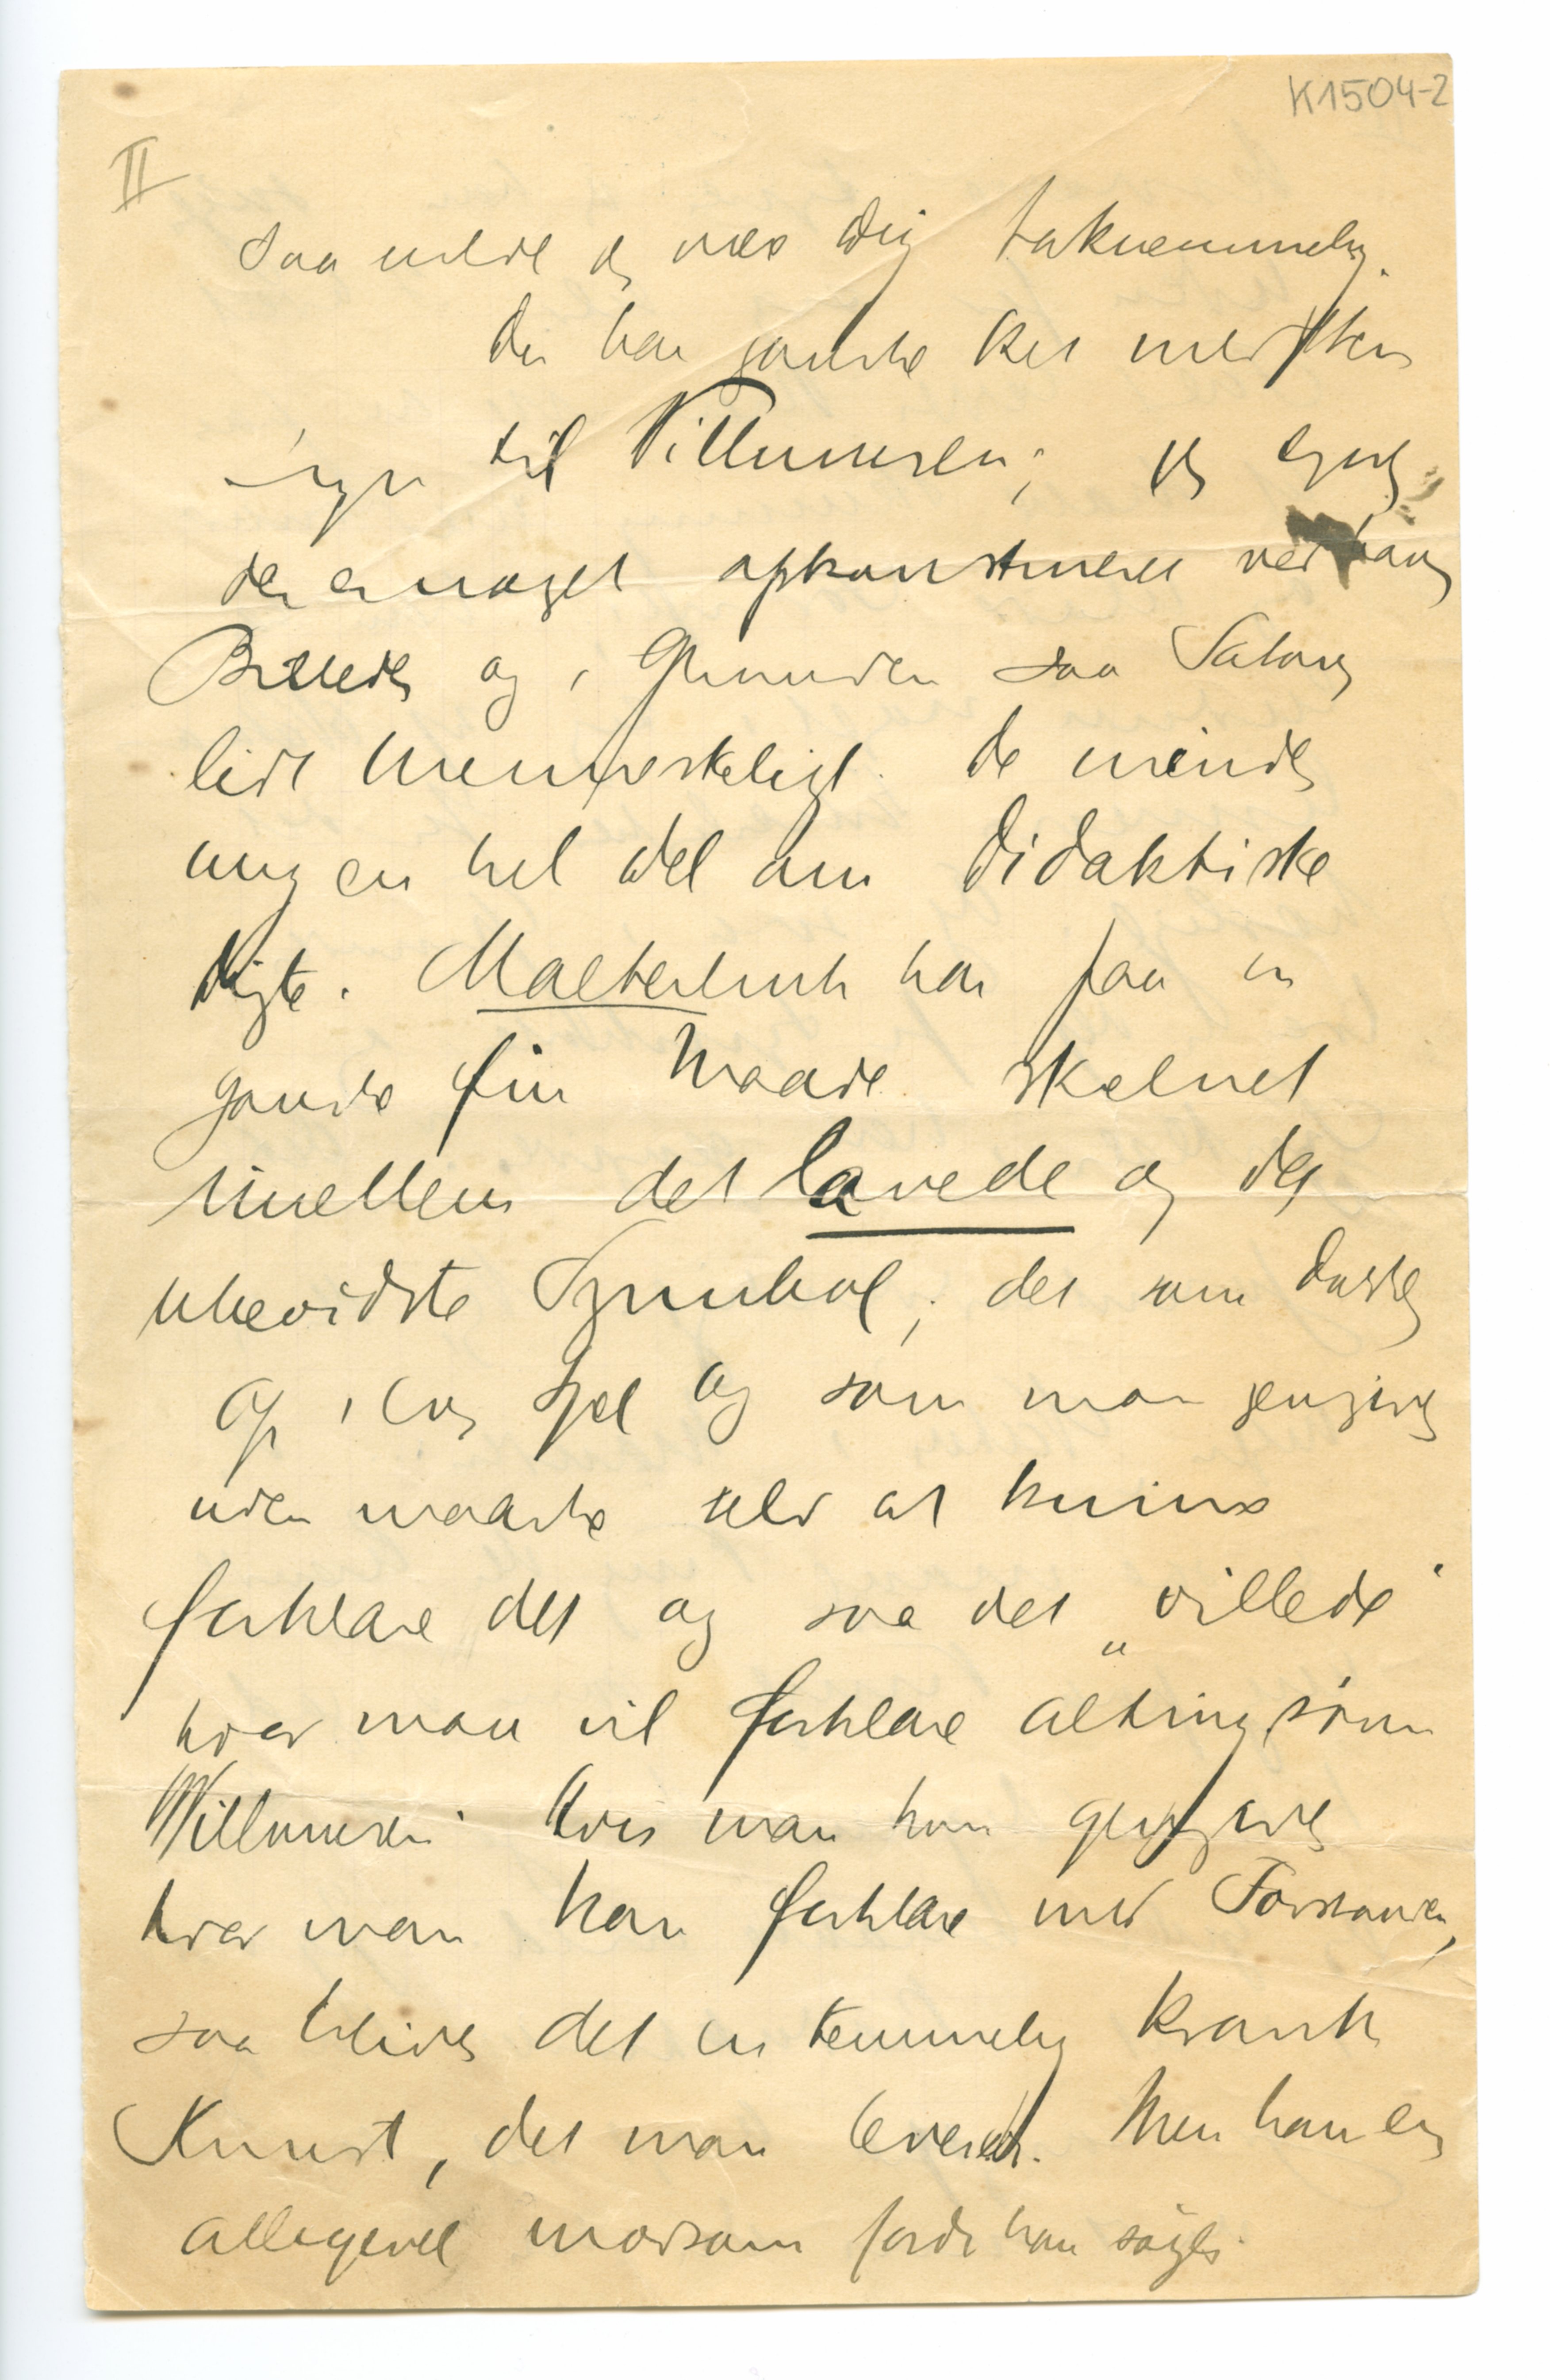 K1504-2
II
saa vilde jeg være dig taknemmelig.
Du har ganske Ret med Hen-
til Villumsen; jeg synes
der er noget opkonstrueret ved hans
Billeder og i Grunden saa Satans
lidt Menneskeligt. De minder
mig en hel del om Didaktiske
Digte. Maeterlinck har paa en
ganske fin Maade skelnet
imellem det lavede og det
ubevidste Symbol; det som dukker
op i Ens Sjæl og som man gengiver
uden maaske selv at kunne
forklare det og saa det „villede"
hvor man vil forklare alting som
Willumsen. Hvis man kun gengiver
hvad man kan forklare med Forstanden,
saa bliver det en temmelig krank
Kunst, det man leverer. Men han er
alligevel morsom fordi han søger.